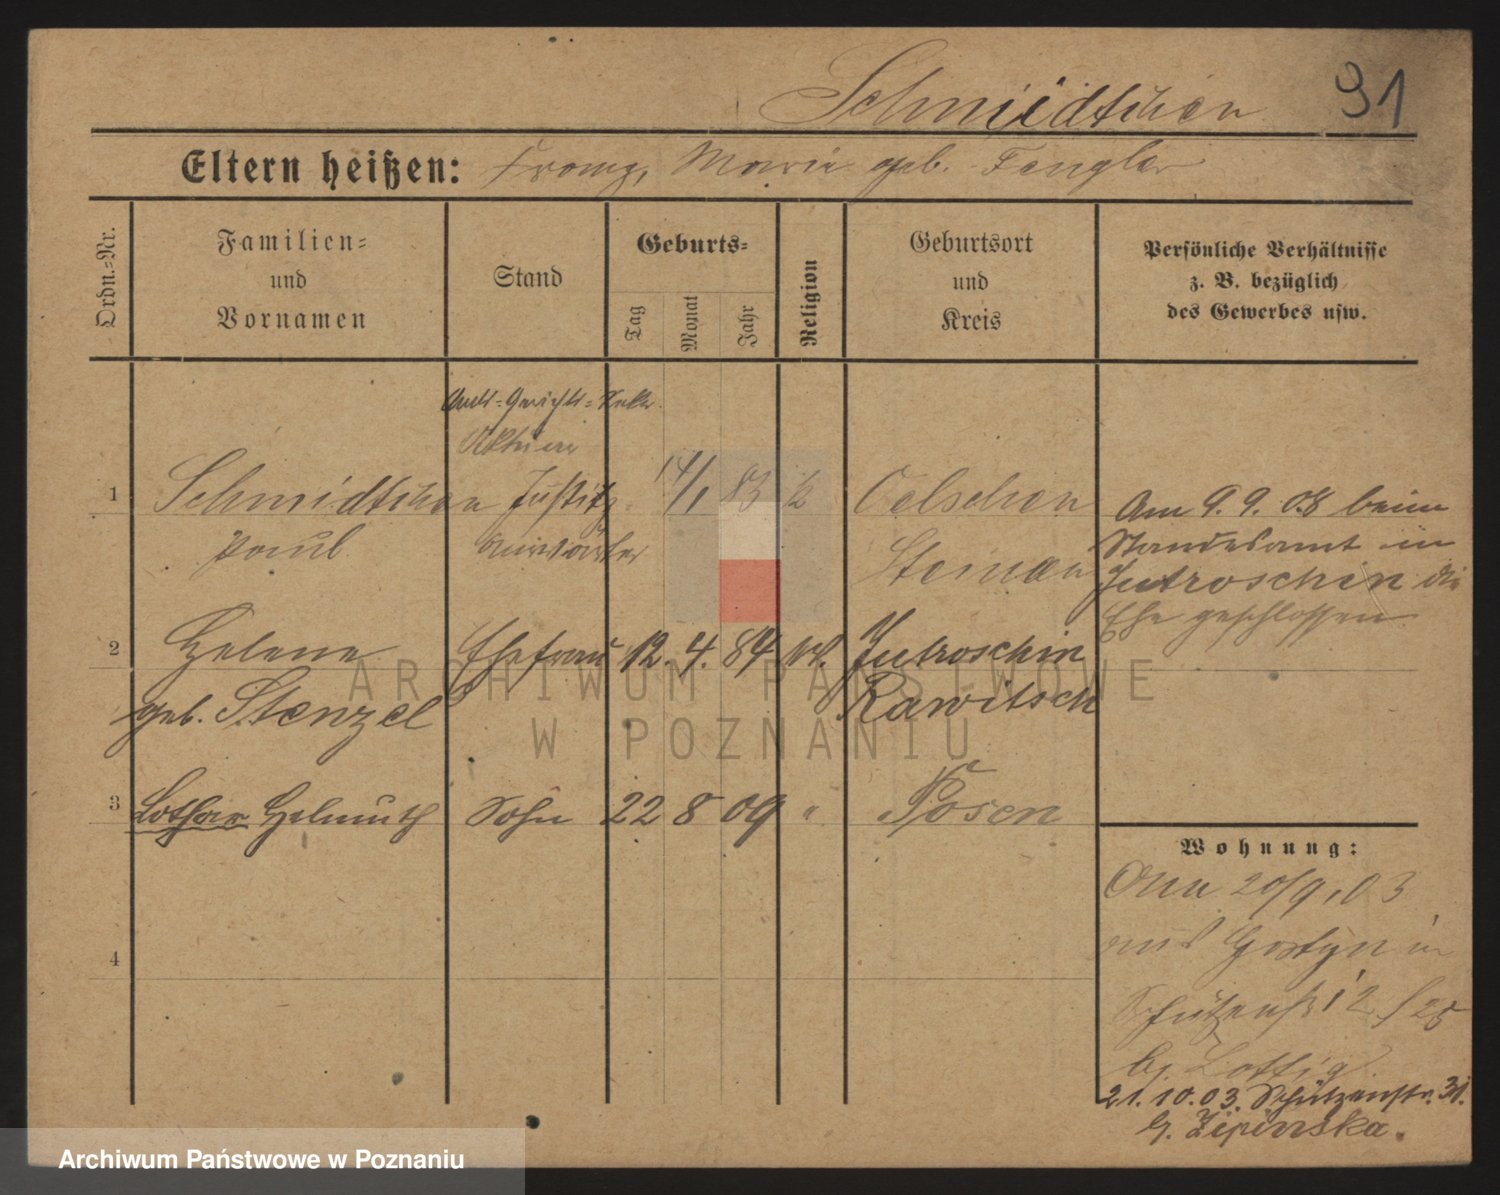 Schmidtchen 91
Eltern heißen: Franz, Marie geb. Fengler
Ordn.-Nr.
Familien-
und
Vornamen
Stand
Geburts-
Tag
Monat
Jahr
Religion
Geburtsort
und
Kreis
Persönliche Verhältnisse
z. B. bezüglich
des Gewerbes usw.
Amts-Gerichts-Sekr.
Aktuar
1 Schmidtchen Justiz- 14/1 83 k Oelschen
Paul anwärter Steinau
Am 9. 9. 08 beim
Standesamt in
Jutroschin die
Ehe geschlossen
2 Helene Ehefrau 12. 4. 84 Jutroschin
geb. Stenzel Rawitsch
3 Lothar Helmuth Sohn 22 8 09 " Posen
4
Wohnung:
20/9, 03
aus Gostyn in
Schützenstr 12
b. Lottig
21. 10. 03. Schützenstr. 31.
b. Zipinska.
ARCHIWUM PAŃSTWOWE
W POZNANIU
Archiwum Państwowe w Poznaniu